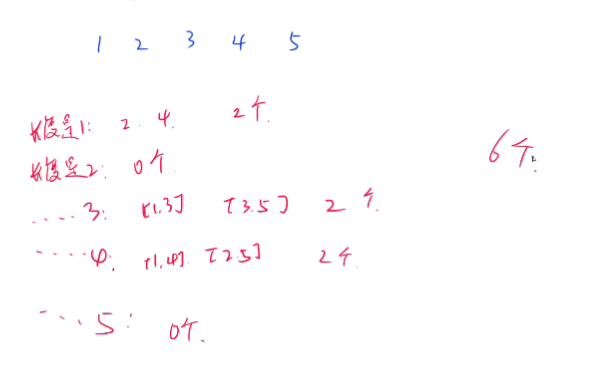 1 2 3 4 5
长度是1: 2. 4. 2个.
长度是2: 0个
..... 3: [1,3] [3.5] 2个.
..... 4: [1,4]. [2.5] 2个.
.... 5: 0个.
6个.